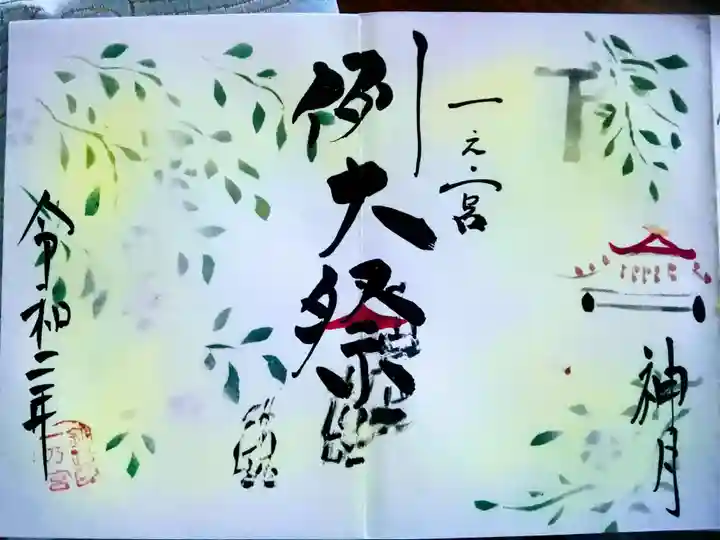 神月
一之宮
例大祭
令和二年